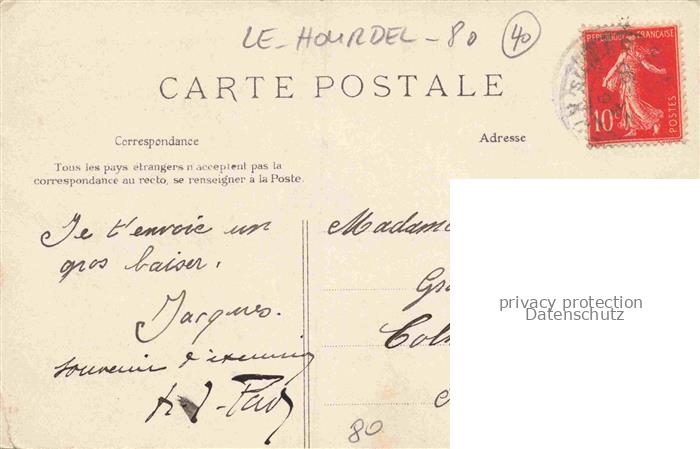 LE-HOURDEL-80 40
CARTE POSTALE
REPUBLIQUE FRANÇAISE
10c POSTES
Correspondance
Adresse
Tous les pays étrangers n'acceptent pas la
correspondance au recto, se renseigner à la Poste.
Je t'envoie un
gros baiser.
Jacques.
souvenir d'
Madam
Gr
Col
80
privacy protection
Datenschutz